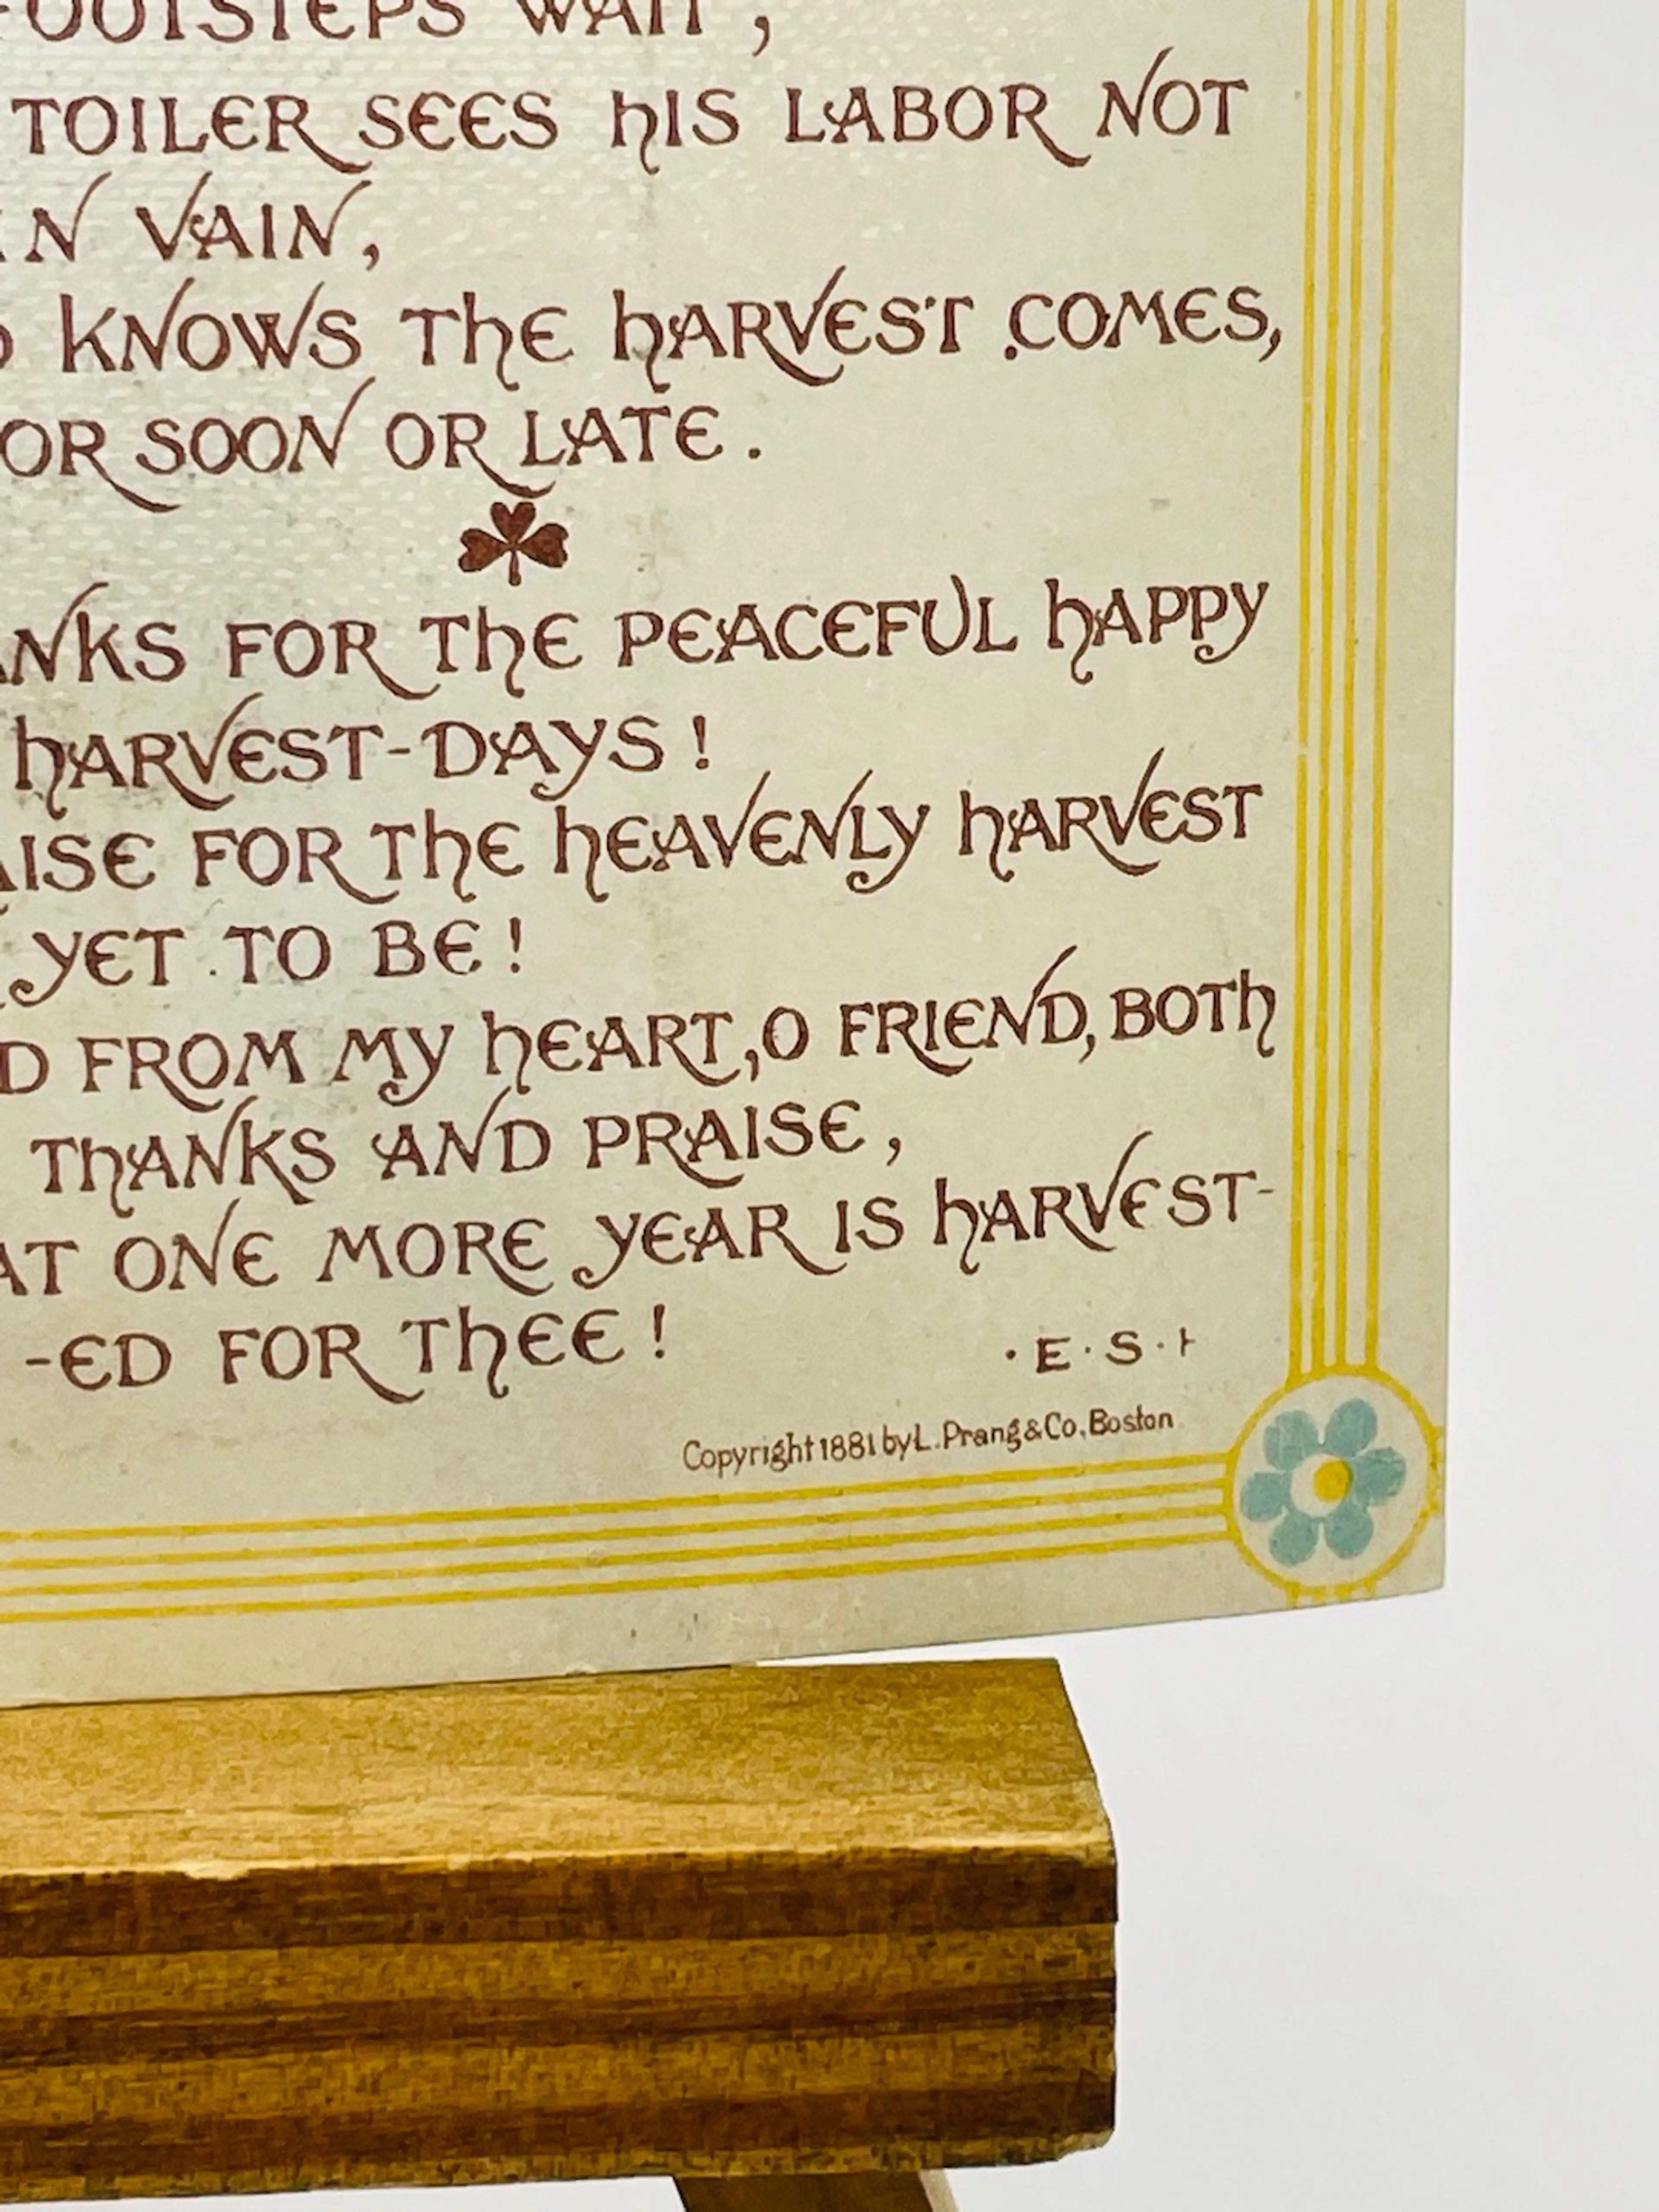 FOOTSTEPS WAIT,
TOILER SEES HIS LABOR NOT
IN VAIN,
KNOWS THE HARVEST COMES,
OR SOON OR LATE.
FOR THE PEACEFUL HAPPY
HARVEST-DAYS!
FOR THE HEAVENLY HARVEST
YET TO BE!
FROM MY HEART, O FRIEND, BOTH
THANKS AND PRAISE,
ONE MORE YEAR IS HARVEST-
-ED FOR THEE!
·E·S·
Copyright 1881 by L. Prang & Co. Boston